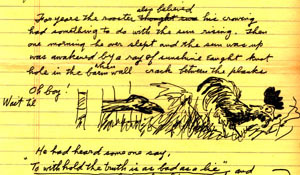 only believed
For years the rooster thought was his crowing
had something to do with the sun rising. Then
one morning he over slept and the sun was up
was awakened by a ray of sunshine knot
hole in the barn wall the crack between the planks
Oh boy!
Wait til
"He had heard someone say,
"To withhold the truth is as bad as a lie", and